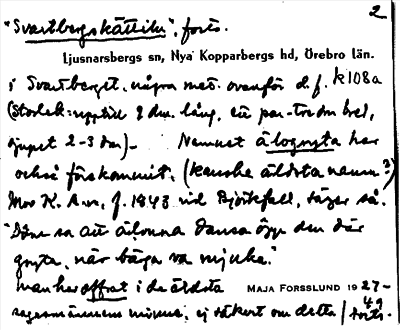 "Svartbergskättiln", forts. 2
Ljusnarsbergs sn, Nya Kopparbergs hd, Örebro län.
i Svartberget, några met. ovanför d.f. k108a
(Storlek: upptill 8 dm. lång, ett par-tre dm bred,
djupet 2-3 dm)- Namnet älogryta har
också förekommit. (kanske äldsta namn?)
Mor K. A-n, f. 1843 vid Björkfall, säger så.
"Dôm sa att älvorna dansa över den där
gryta, när bärga va mjuka."
man har offrat i de äldsta
MAJA FORSSLUND 1927-
49
sagesmännens minne, ej säkert om detta / forts.